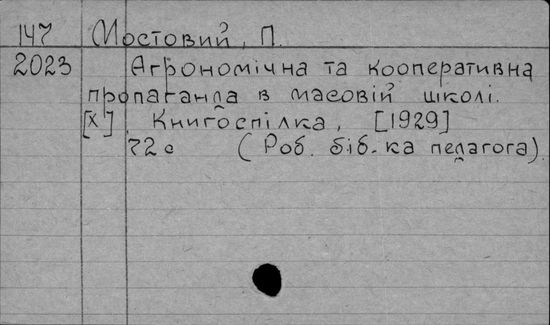 147 Мостовий, П.
2023 Агрономічна та кооперативна
пропаганда в масовій школі.
[Х] Книгоспілка, [1929]
72 с (Роб. біб-ка педагога)